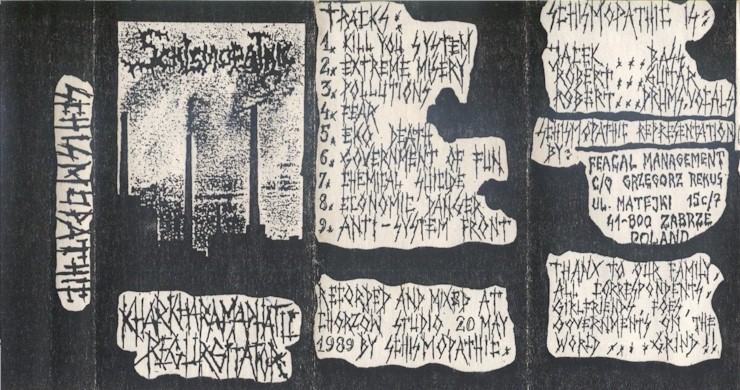 SCHISMOPATHIC
SCHISMOPATHIC
KHARKHARANAPHATIC
REGURGITATOR
TRACKS:
1. KILL YOU SYSTEM
2. EXTREME MISERY
3. POLLUTIONS
4. FEAR
5. EKO DEATH
6. GOVERNMENT OF FUN
7. CHEMICAL SUICIDE
8. ECONOMIC DANGER
9. ANTI-SYSTEM FRONT
RECORDED AND MIXED AT
CHORZOW STUDIO, 20 MAY
1989 BY SCHISMOPATHIC.
SCHISMOPATHIC IS:
JACEK ... BASS
ROBERT ... GUITAR
ROBERT ... DRUMS, VOCALS
SCHISMOPATHIC REPRESENTATION
BY:
FEACAL MANAGEMENT
C/O GRZEGORZ REKUS
UL. MATEJKI 15c/7
41-800 ZABRZE
POLAND
THANX TO OUR FAMILY,
ALL CORRESPONDENTS,
GIRLFRIENDS, FOES,
GOVERNMENTS OF THE
WORLD ... GRIND!!